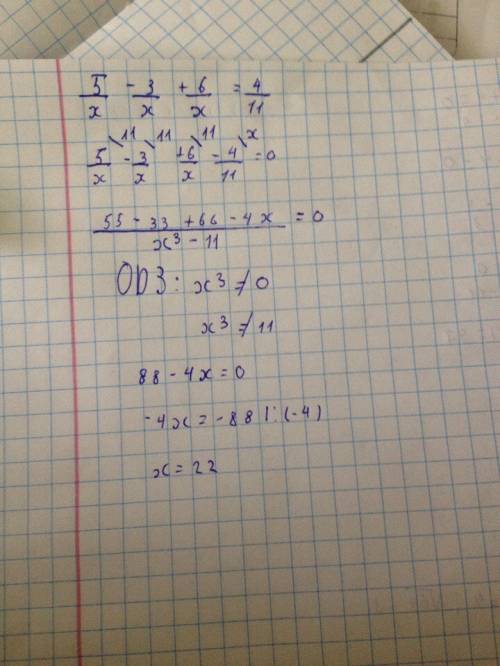 5/x - 3/x + 6/x = 4/11
5/x \11 - 3/x \11 + 6/x \11 - 4/11 \x = 0
55 - 33 + 66 - 4x / x³ - 11 = 0
ОДЗ: x³ ≠ 0
x³ ≠ 11
88 - 4x = 0
-4x = -88 |:(-4)
x = 22